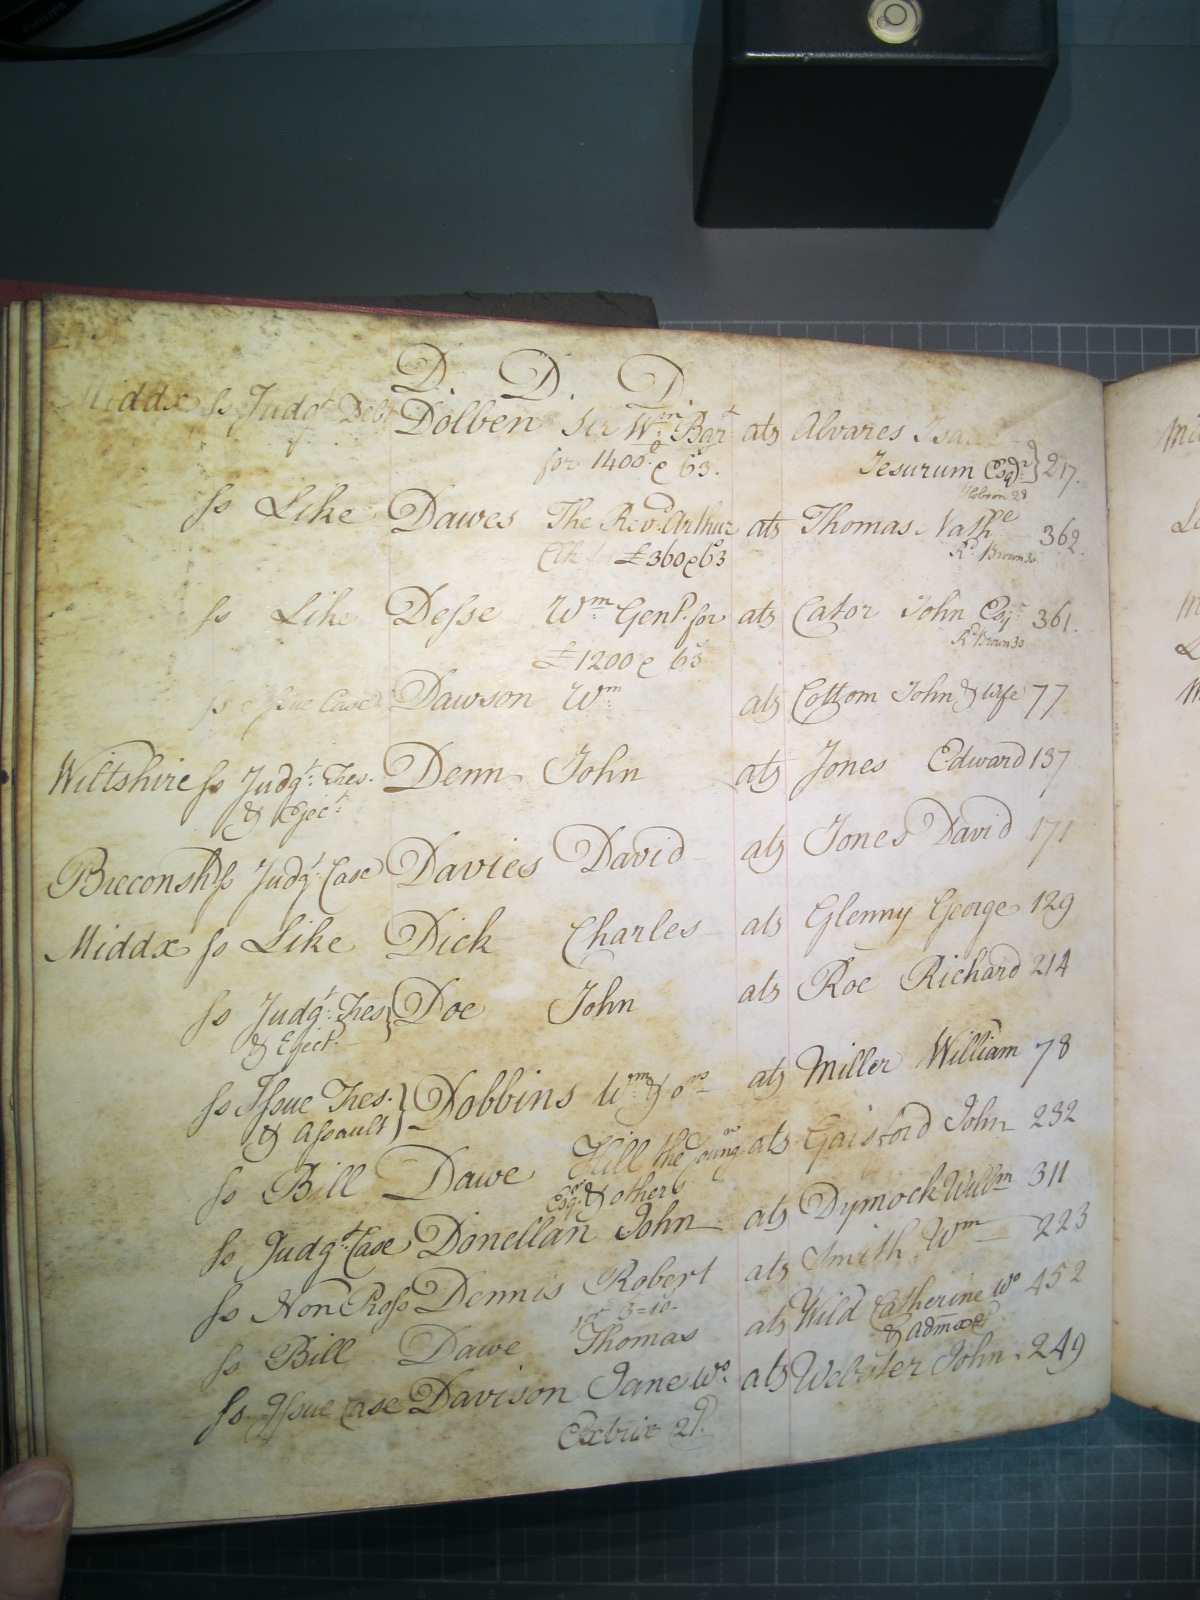 D. D. D.
Middx ss Judgt Debt Dolben Sir Wm Bart ats Alvares Isaac
for 1400£ & 63s. Jesurum Esqr } 217.
Hobson 28
ss Like Dawes The Revd Arthur ats Thomas Nathe 362
Clk for £360 & 63 Rd Brown 30
ss Like Desse Wm Gent. for ats Cator John Esqr 361.
£1200 & 63 Rd Brown 30
ss Issue Case Dawson Wm ats Cottom John & Wife 77
Wiltshire ss Judgt. Tres. Denn John ats Jones Edward 137
& Eject.
Breconsh ss Judgt Case Davies David ats Jones David 171
Middx ss Like Dick Charles ats Glenny George 129
ss Judgt. Tres } Doe John ats Roe Richard 214
& Eject.
ss Issue Tres. } Dobbins Wm & ors ats Miller William 78
& Assault
ss Bill Dawe Hill the Youngr ats Gaisford John 232
Esqr. & others
ss Judgt Case Donellan John ats Dymock Willm 311
ss Non Pross Dennis Robert ats Smith Wm 223
for 3=10-
ss Bill Dawe Thomas ats Wild Catherine Wo 452
& Admx &c
ss Issue Case Davison Jane Wo. ats Webster John. 249
Exbrix 2d.